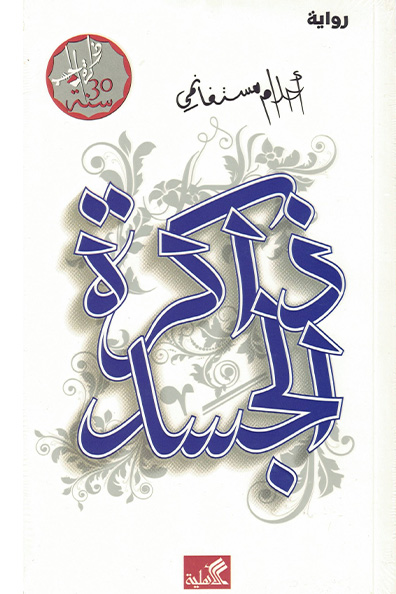 رواية
أحلام مستغانمي
ذاكرة الجسد
30
سنة
ذاكرة
الجسد
الأهلية